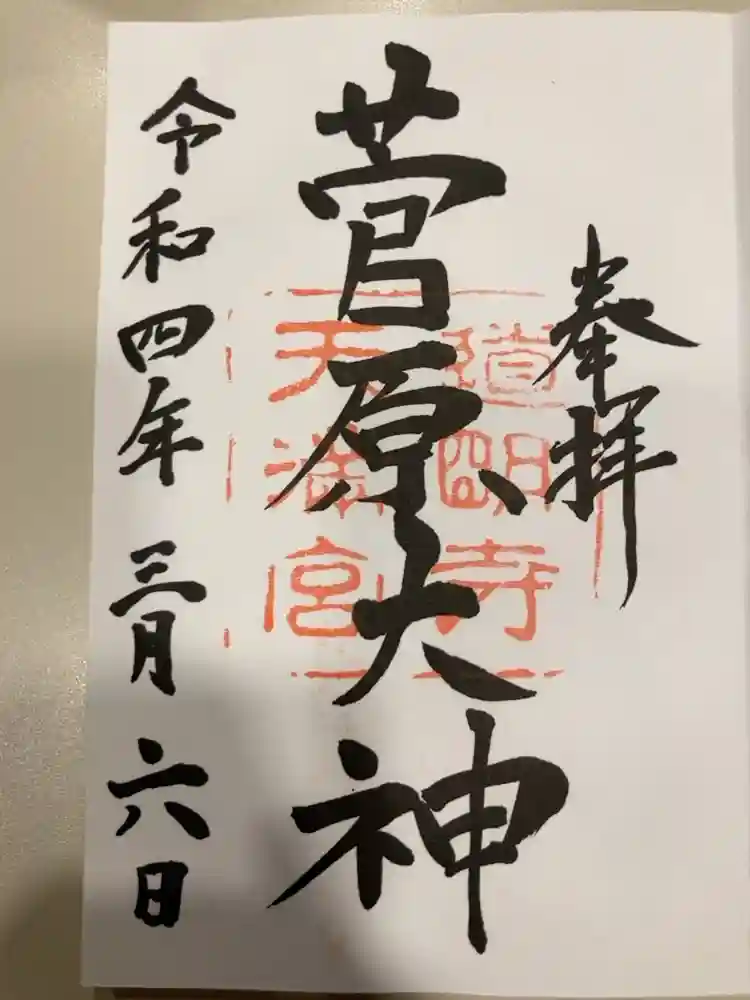 奉拝
菅原大神
道明寺
天満宮
令和四年 三月 六日